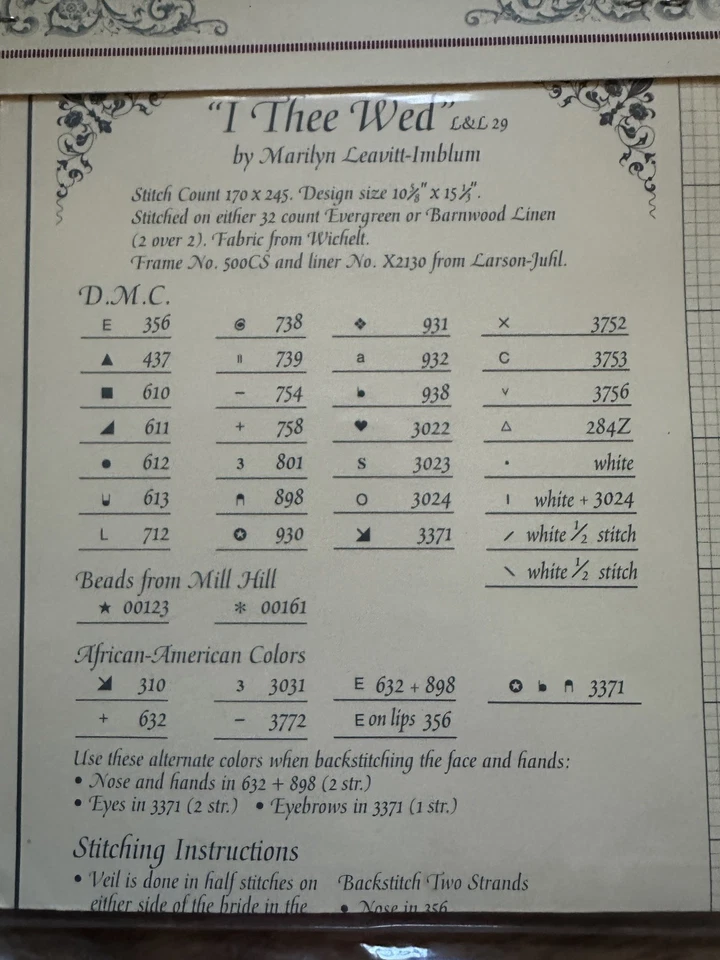 "I Thee Wed" L&L 29
by Marilyn Leavitt-Imblum
Stitch Count 170 x 245. Design size 10⅝" x 15⅓".
Stitched on either 32 count Evergreen or Barnwood Linen
(2 over 2). Fabric from Wichelt.
Frame No. 500CS and liner No. X2130 from Larson-Juhl.
D.M.C.
E 356 738 931 X 3752
▲ 437 ॥ 739 a 932 C 3753
■ 610 – 754 938 v 3756
◢ 611 + 758 ♥ 3022 △ 284Z
● 612 3 801 S 3023 · white
613 898 O 3024 ı white + 3024
L 712 ✪ 930 3371 / white ½ stitch
\ white ½ stitch
Beads from Mill Hill
★ 00123 ✻ 00161
African-American Colors
310 3 3031 E 632 + 898 ✪ 3371
+ 632 – 3772 E on lips 356
Use these alternate colors when backstitching the face and hands:
• Nose and hands in 632 + 898 (2 str.)
• Eyes in 3371 (2 str.) • Eyebrows in 3371 (1 str.)
Stitching Instructions
• Veil is done in half stitches on Backstitch Two Strands
either side of the bride in the • Nose in 356